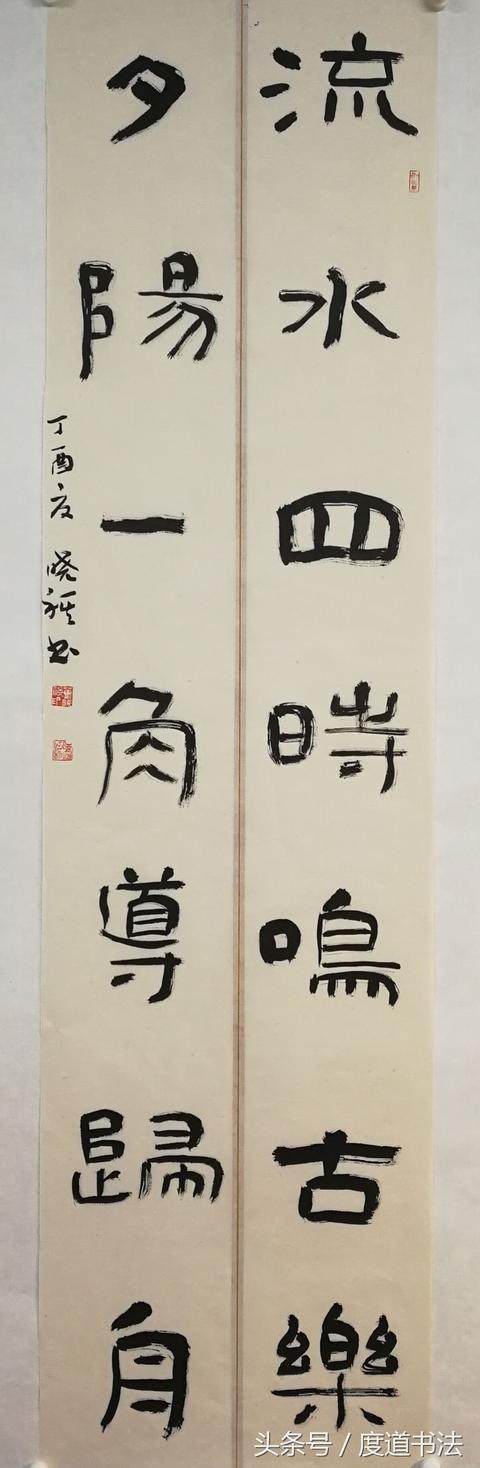 流水四時鳴古樂
夕陽一角導歸舟
丁酉夏 晓 书
头条号 / 度道书法